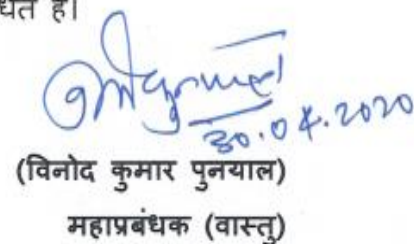 है।
30.04.2020
(विनोद कुमार पुनयाल)
महाप्रबंधक (वास्तु)